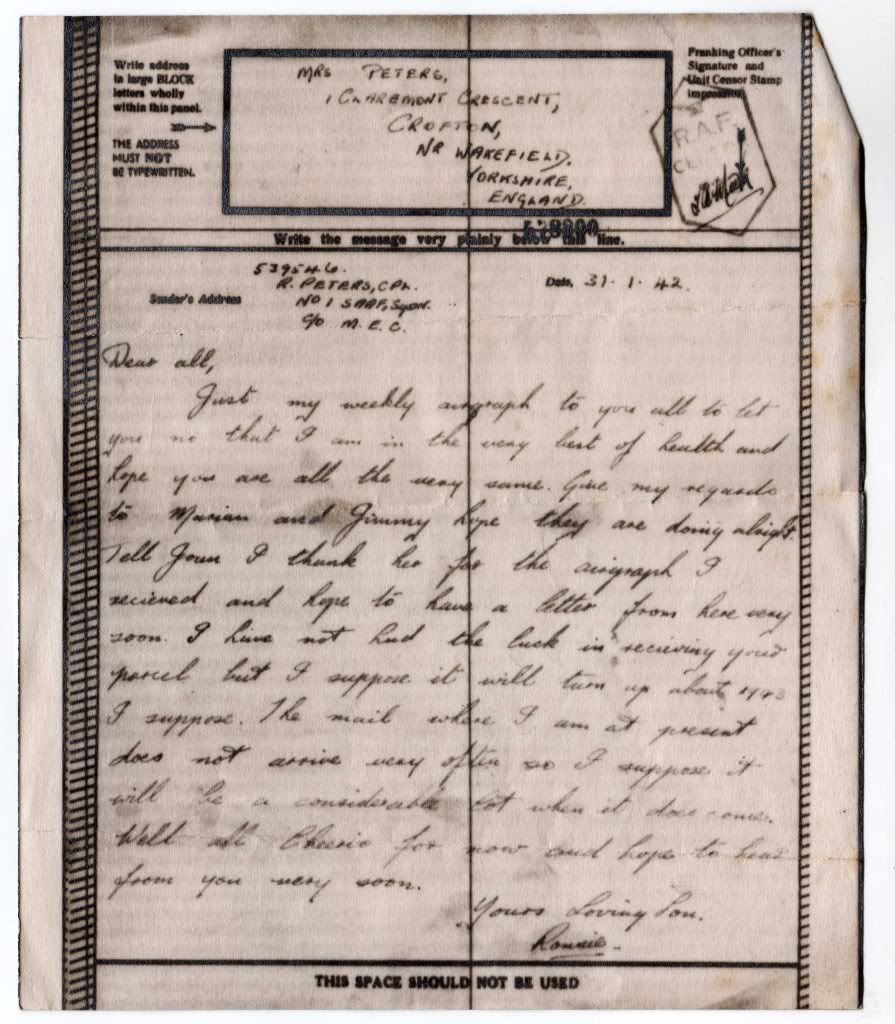 Write address
in large BLOCK
letters wholly
within this panel.
THE ADDRESS
MUST NOT
BE TYPEWRITTEN.
MRS PETERS,
1 CLAREMONT CRESCENT,
CROFTON,
NR WAKEFIELD.
YORKSHIRE,
ENGLAND.
Franking Officer's
Signature and
Unit Censor Stamp
R.A.F.
Write the message very plainly below this line.
539546.
Sender's Address
R. PETERS, CPL.
NO 1 SAAF, Sqdn.
C/o M. E. C.
Date, 31 · 1 · 42.
Dear all,
Just my weekly airgraph to you all to let
you no that I am in the very best of health and
hope you are all the very same. Give my regards
to Marian and Jimmy hope they are doing alright.
Tell Joan I thank her for the airgraph I
recieved and hope to have a letter from here very
soon. I have not had the luck in recieving your
parcel but I suppose it will turn up about 1943
I suppose. The mail where I am at present
does not arrive very often so I suppose it
will be a considerable lot when it does come.
Well all Cheerio for now and hope to hear
from you very soon.
Yours Loving Son.
Ronnie.
THIS SPACE SHOULD NOT BE USED